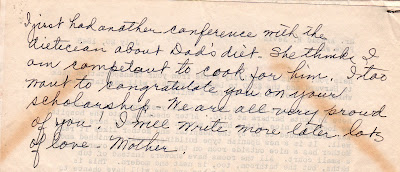 I just had another conference with the
dietician about Dad's diet - She thinks I
am competant to cook for him. I too
want to congratulate you on your
scholarship - We are all very proud
of you! I will write more later lots
of love - Mother.